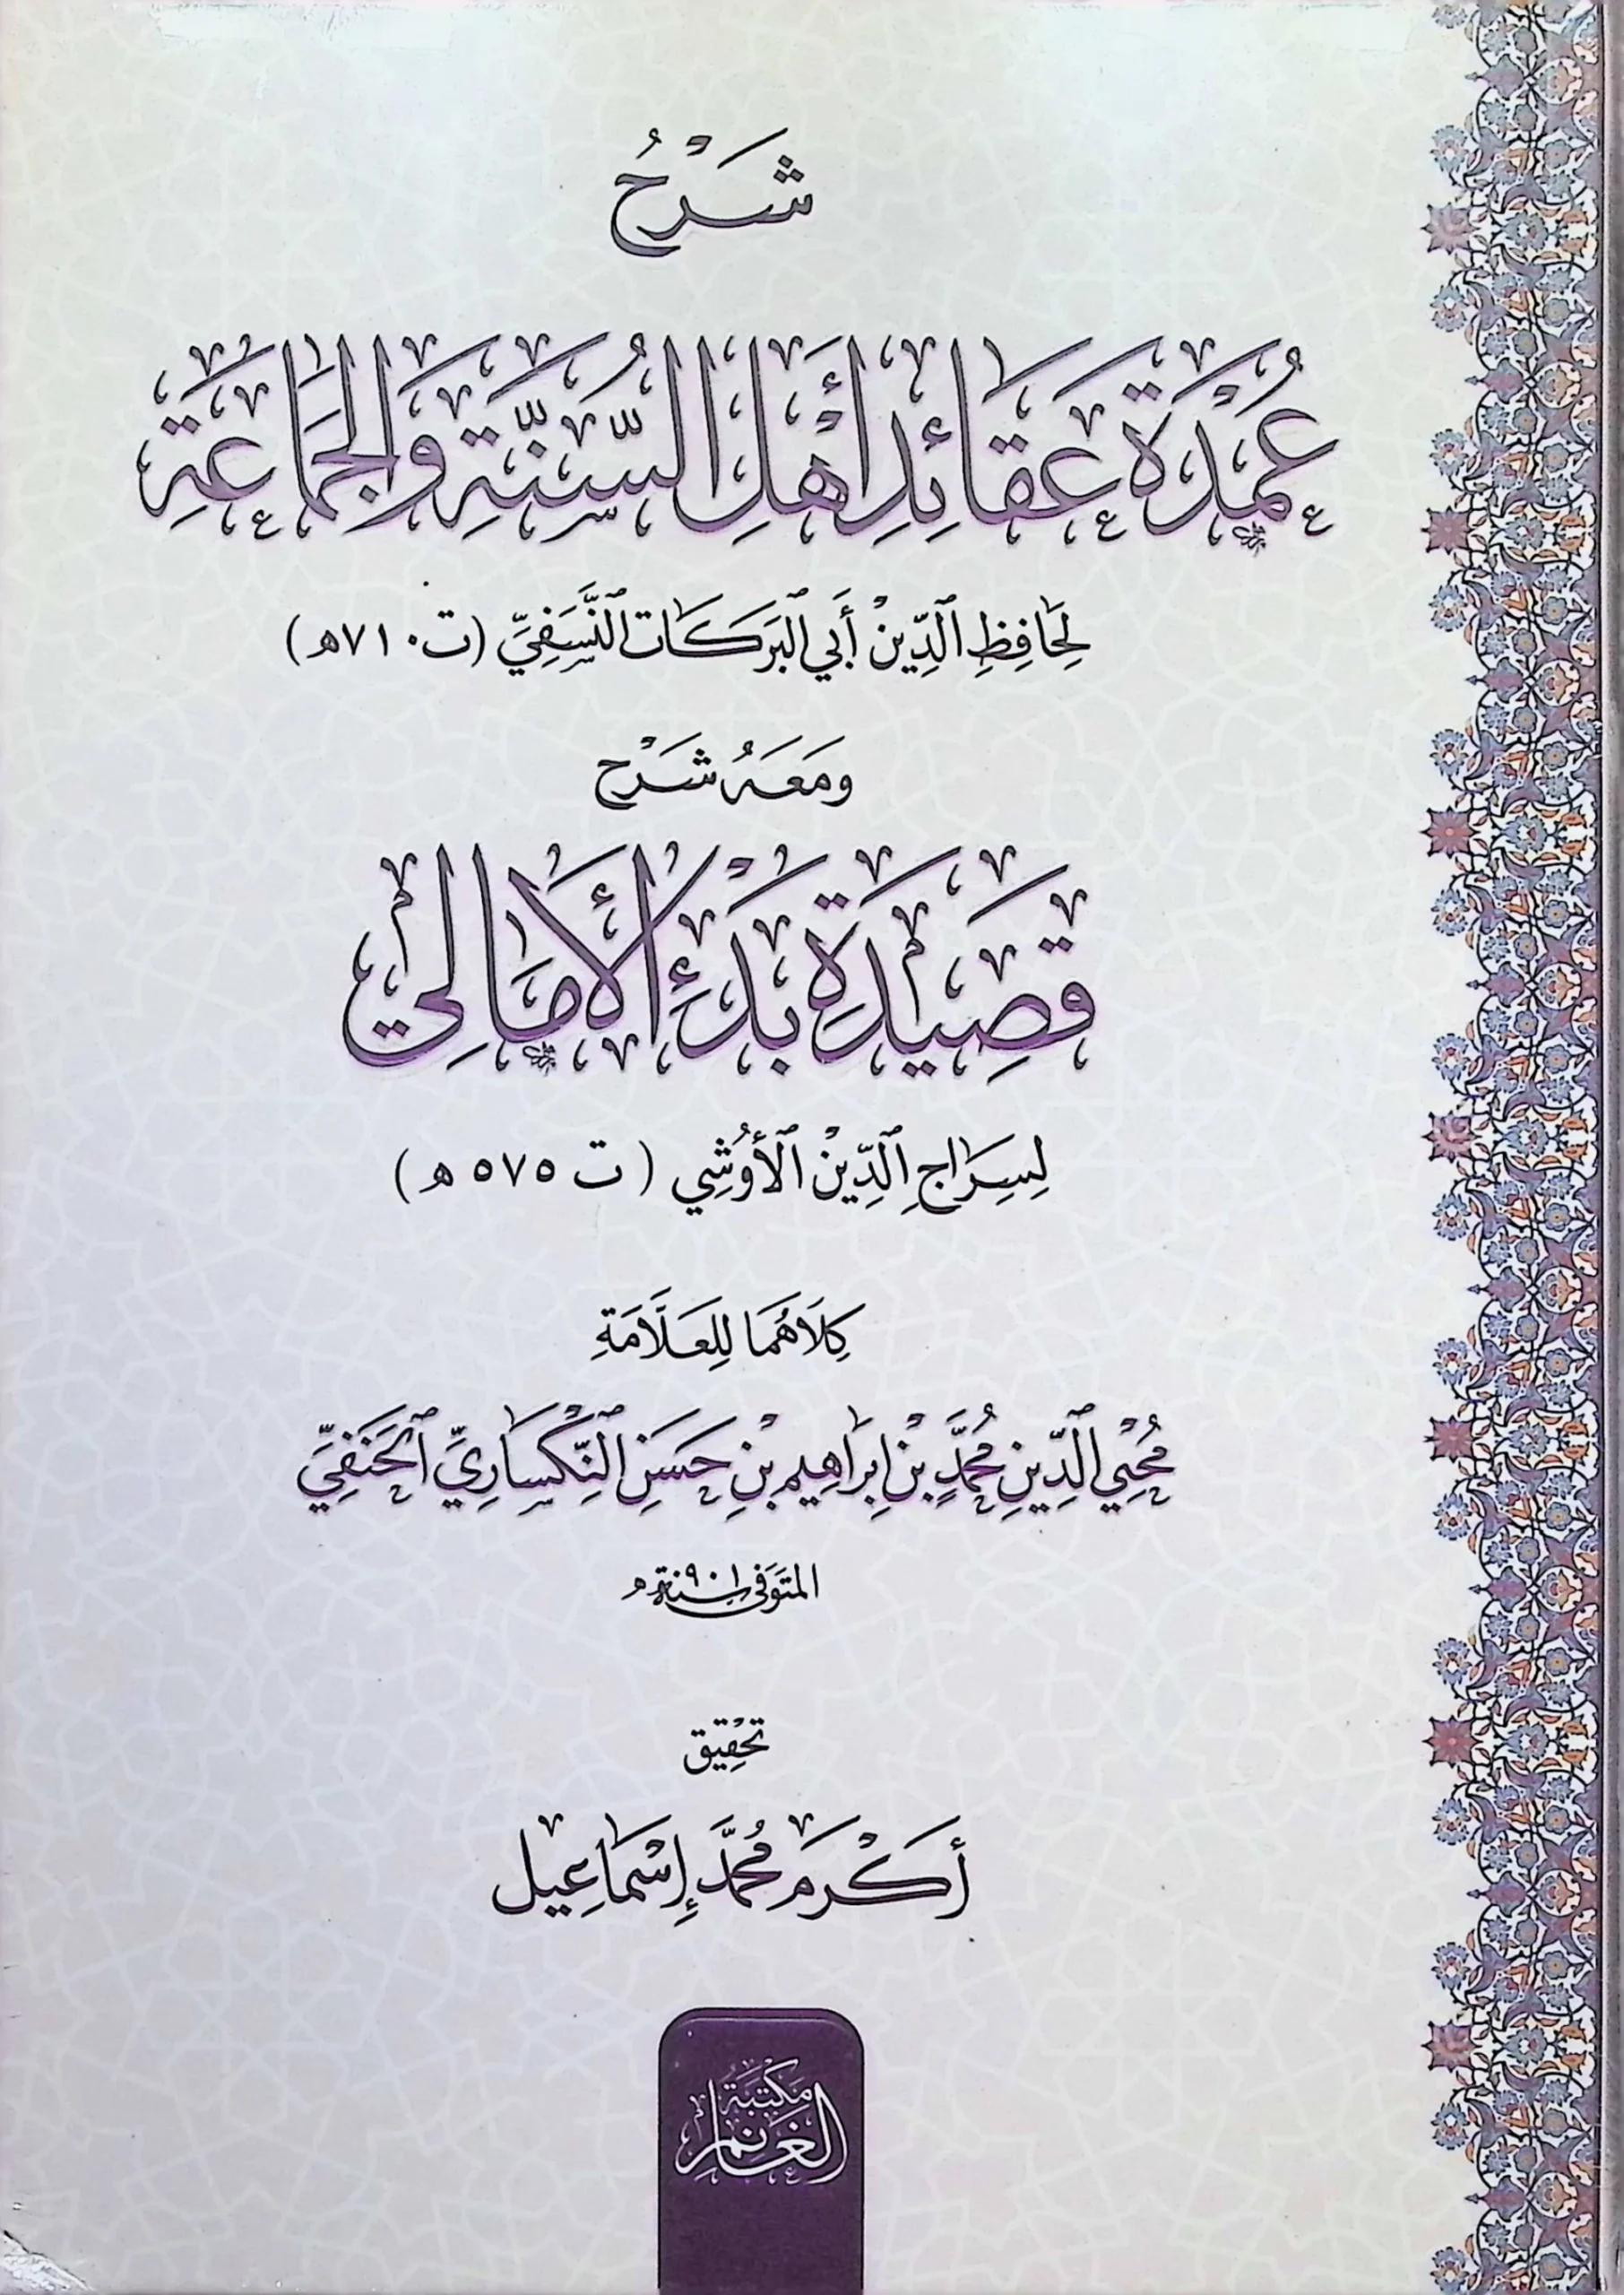 شَرْحُ
عُمْدَةِ عَقَائِدِ أَهْلِ السُّنَّةِ وَالجَمَاعَةِ
لِحَافِظِ الدِّينْ أَبي البَرَكَات النَّسَفِيِّ (ت ٧١٠هـ)
ومَعَهُ شَرْح
قَصِيْدَةِ بَدْءِ الأَمَالِي
لِسِرَاجِ الدِّيْنْ الأُوْشِي (ت ٥٧٥ هـ)
كِلَاهُمَا لِلعَلَّامَةِ
مُحْيِي الدِّينِ مُحَمَّدِ بْنِ إِبرَاهِيم بْنِ حَسَنِ النِّكْسَارِيِّ الحَنَفِيِّ
المتَوَفى سنة ٩٠١ هـ
تَحْقِيق
أَكْرَم مُحَمَّد إِسْمَاعِيل
مَكْتَبَةُ
الغَانِم